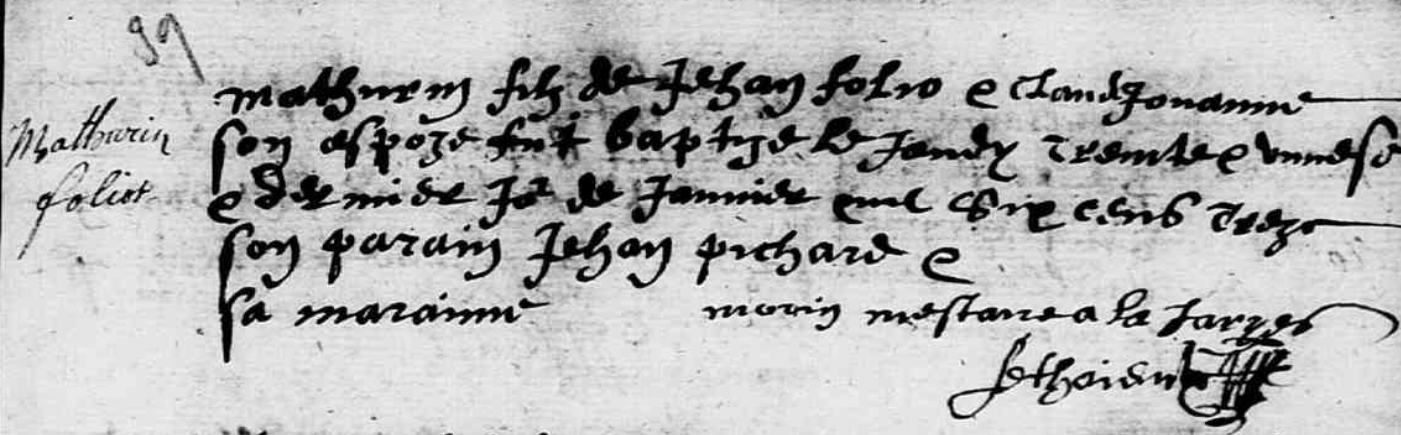 99
Mathurin
foliot
mathurin filz de Jehan folio e Claude Jouanne
son espoze fut baptize le Jeudy trente e uniesme
e dernier Jor de Janvier mil six cens treze
son parain Jehan pichard e
sa maraine morin mestaire a la Jarzes